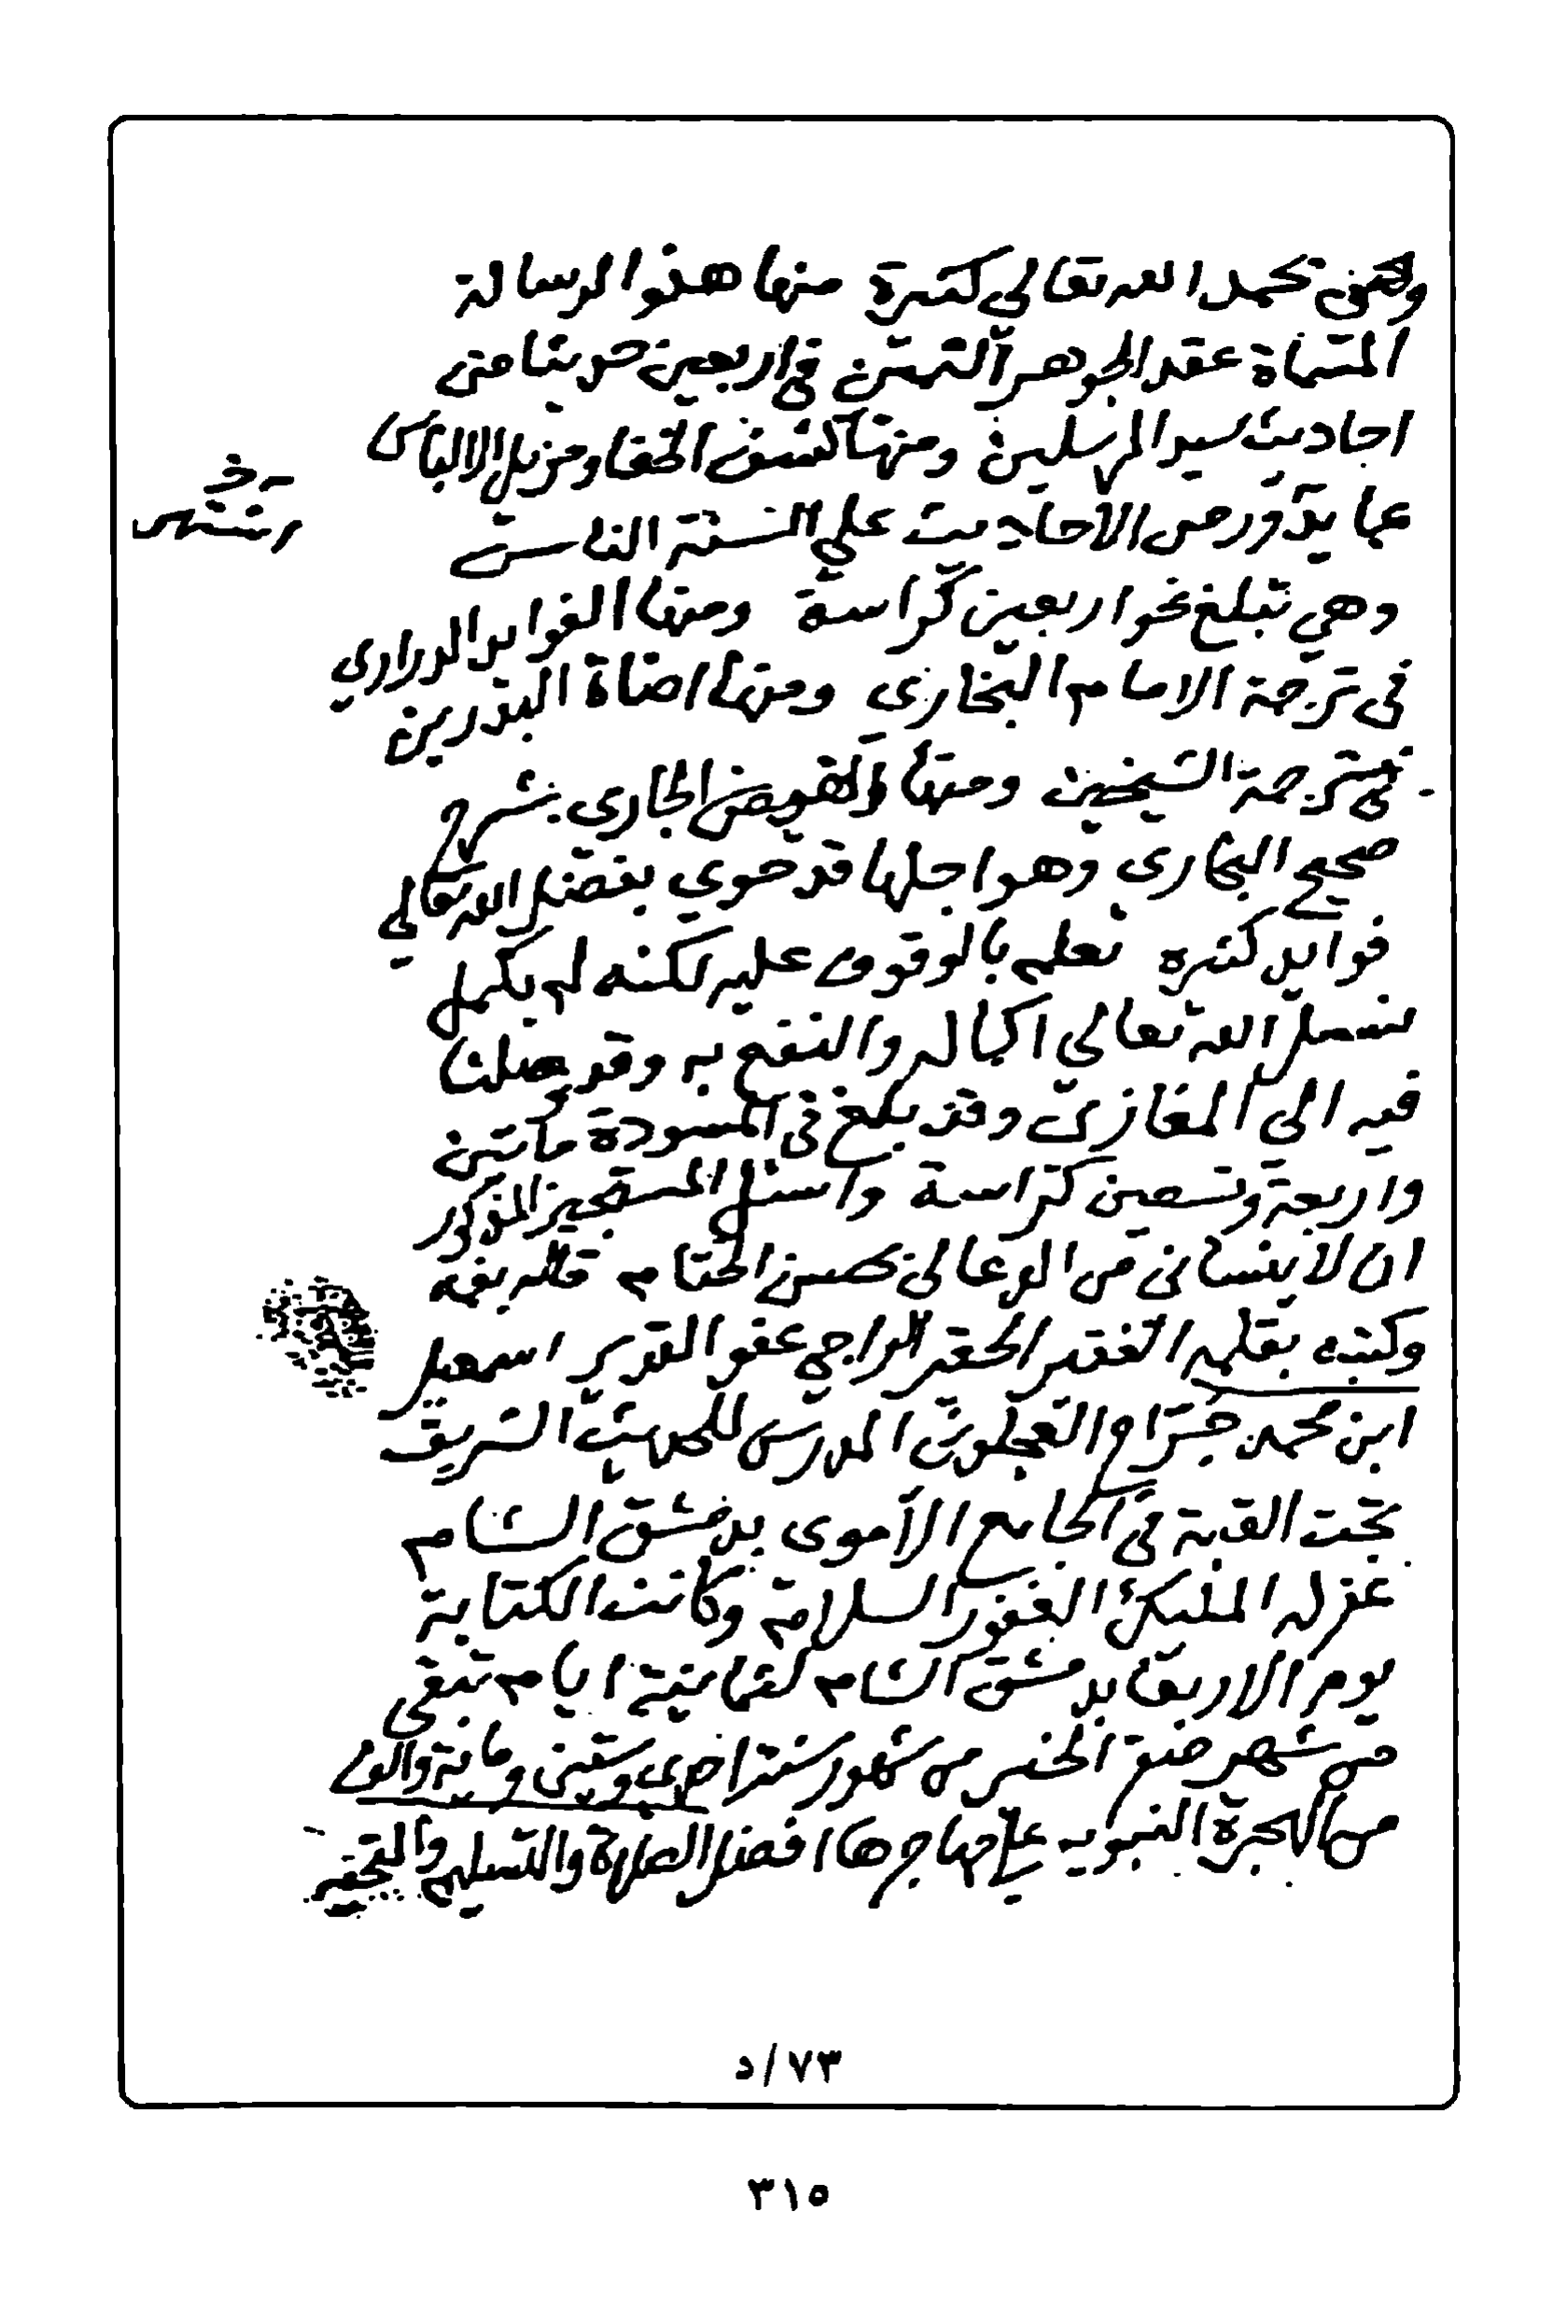 وهي بحمد الله تعالى كثيرة منها هذه الرسالة
المسماة عقد الجوهر الثمين في اربعين حديثا من
احاديث سيد المرسلين ومنها كشف الخفا ومزيل الالباس
عما يدور من الاحاديث على السنة الناس
يشتهر خ
وهي تبلغ نحو اربعين كراسة ومنها الفوايد الدراري
في ترجمة الامام البخاري ومنها اضاة البدرين
في ترجمة الشيخين ومنها الفيض الجاري بشرح
صحيح البخاري وهو اجلها قد حوي بفضل الله تعالي
فوايد كثيره تعلم بالوقوف عليه لكنه لم يكمل
نسئل الله تعالي اكماله والنفع به وقد وصلنا
فيه الي المغازي وقد بلغ في المسودة مأتين
واربعة وتسعين كراسة واسئل المستجيز المذكور
ان لا ينساني من الدعا لي بحسن الختام قاله بفمه
وكتبه بقلمه الفقير الحقير الراجي عفو القدير اسمعيل
ابن محمد جراح العجلوني المدرس للحديث الشريف
تحت القبة في الجامع الأموي بدمشق الشام
عزله المليك الغفور السلام وكانت الكتابة
يوم الاربعا بدمشق الشام لثمانية ايام تبقى
من شهر صفر الخير من شهور سنة احدى وستين وماية والف
من الهجرة النبويه على مهاجرها افضل الصلاة والتسليم والتحيه
٧٣/د
٣١٥